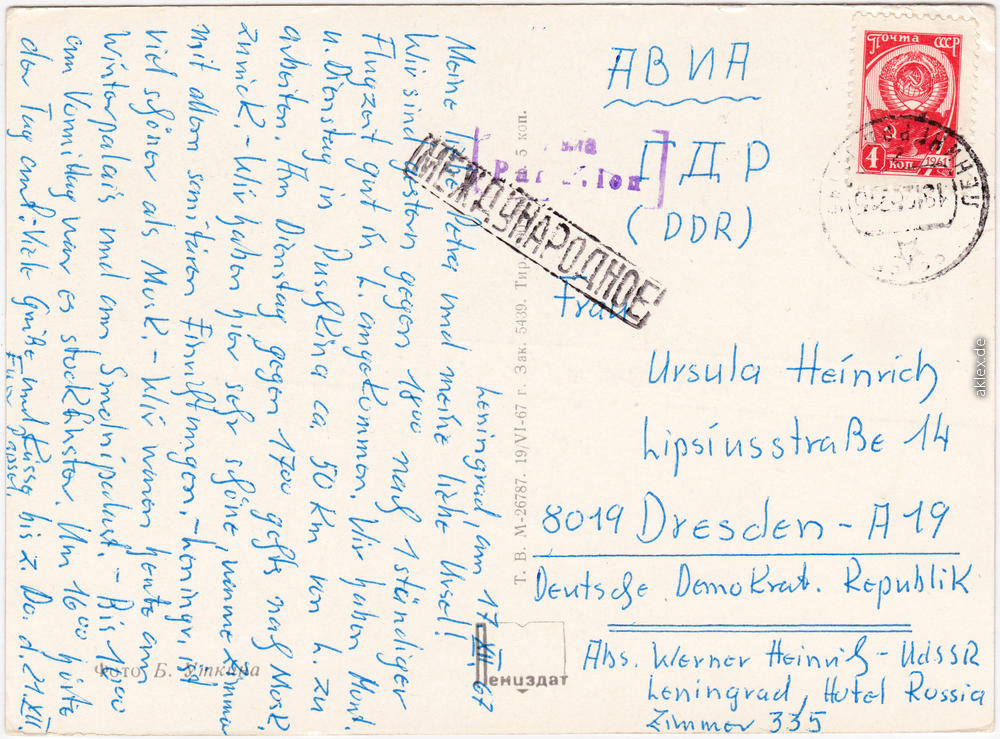 Leningrad, am 17. XII. 67
Meine liebe Petra und meine liebe Ursel!
Wir sind gestern gegen 1800 nach 1 stündiger
Flugzeit gut in L. angekommen. Wir haben Mont.
u. Dienstag in Puschkina ca 50 Km von L. zu
arbeiten. Am Dienstag gegen 1700 gehts nach Mosk.
zurück. - Wir haben hier sehr schöne, warme Zimmer
mit allen sanitären Einrichtungen. - Leningr. ist
viel schöner als Mosk. - Wir waren heute am
Winterpalais und am Smolnipalast. - Bis 1000
am Vormittag war es stockfinster. Um 1600 hörte
der Tag auf. Viele Grüße und Küsse bis z. Do. d. 21. XII.
Euer Papsel.
АВИА
ГДР
(DDR)
Frau
Ursula Heinrich
Lipsiusstraße 14
8019 Dresden - A 19
Deutsche Demokrat. Republik
Abs. Werner Heinrich - UdSSR
Leningrad, Hotel Russia
Zimmer 335
МЕЖДУНАРОДНОЕ
Почта СССР
4 коп.
1961
ЛЕНИНГРАД
Т. В. М-26787. 19/VI-67 г. Зак. 5439. Тир. 5 коп.
Фото Б. Уткина
Лениздат
aklex.de